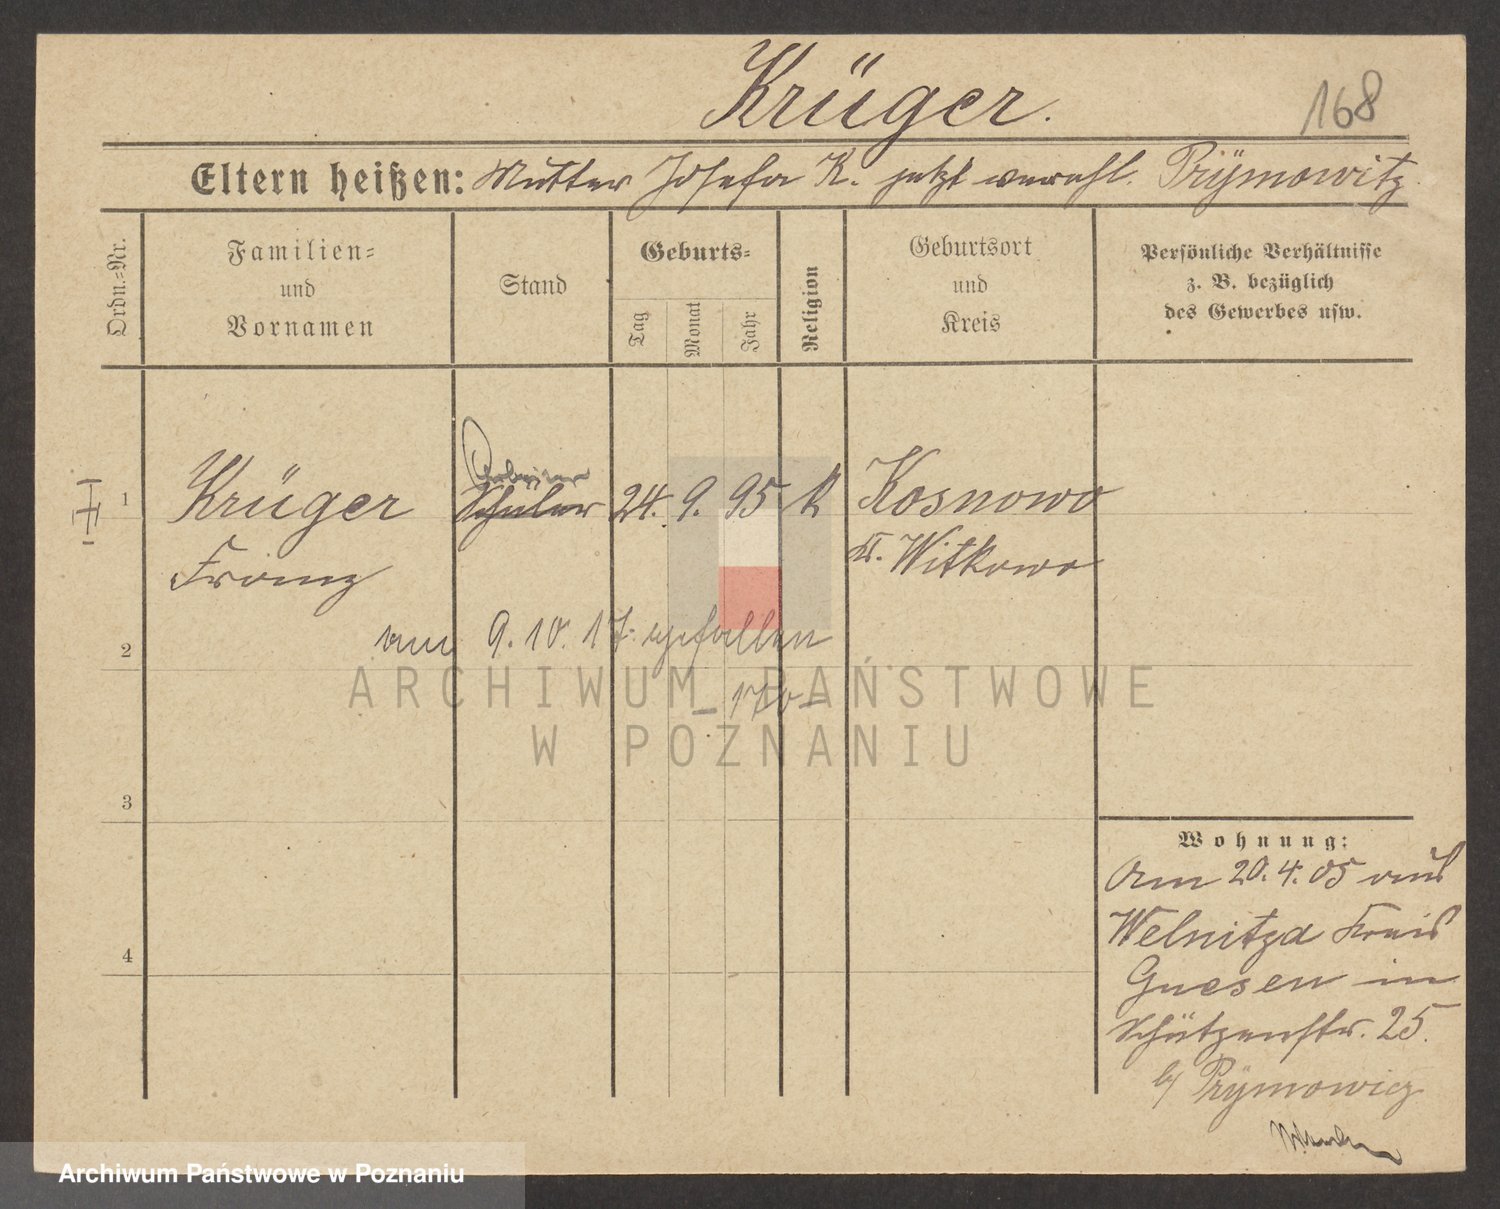 Krüger.
168
Eltern heißen: Mutter Josefa K. jetzt verehl. Prÿmowitz
Ordn.-Nr.
Familien-
und
Vornamen
Stand
Geburts-
Tag
Monat
Jahr
Religion
Geburtsort
und
Kreis
Persönliche Verhältnisse
z. B. bezüglich
des Gewerbes usw.
Arbeiter
1 Krüger Schüler 24. 9. 95 k Kosnowo
Franz Kr. Witkowo
am 9.10.17. gefallen
2
3
4
Wohnung:
Am 20.4.05 aus
Welnitza Kreis
Gnesen in
Schützenstr. 25.
b/ Prÿmowicz
ARCHIWUM PAŃSTWOWE
W POZNANIU
Archiwum Państwowe w Poznaniu